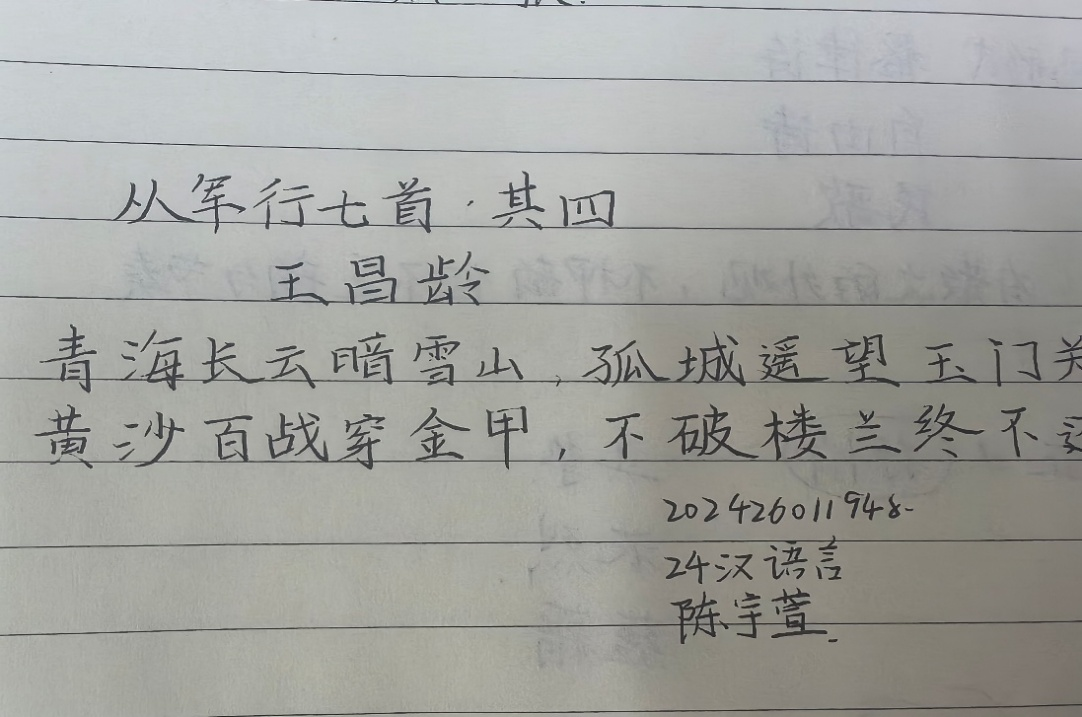 从军行七首·其四
王昌龄
青海长云暗雪山，孤城遥望玉门关
黄沙百战穿金甲，不破楼兰终不还
202426011948.
24汉语言
陈宇萱.